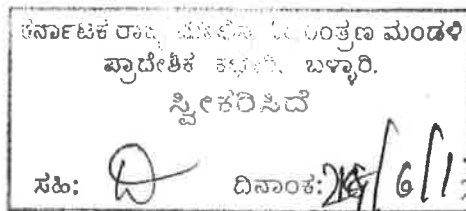 ಕರ್ನಾಟಕ ರಾಜ್ಯ ನಿಯಂತ್ರಣ ಮಂಡಳಿ
ಪ್ರಾದೇಶಿಕ ಕಛೇರಿ, ಬಳ್ಳಾರಿ.
ಸ್ವೀಕರಿಸಿದೆ
ಸಹಿ: ದಿನಾಂಕ: /6/1